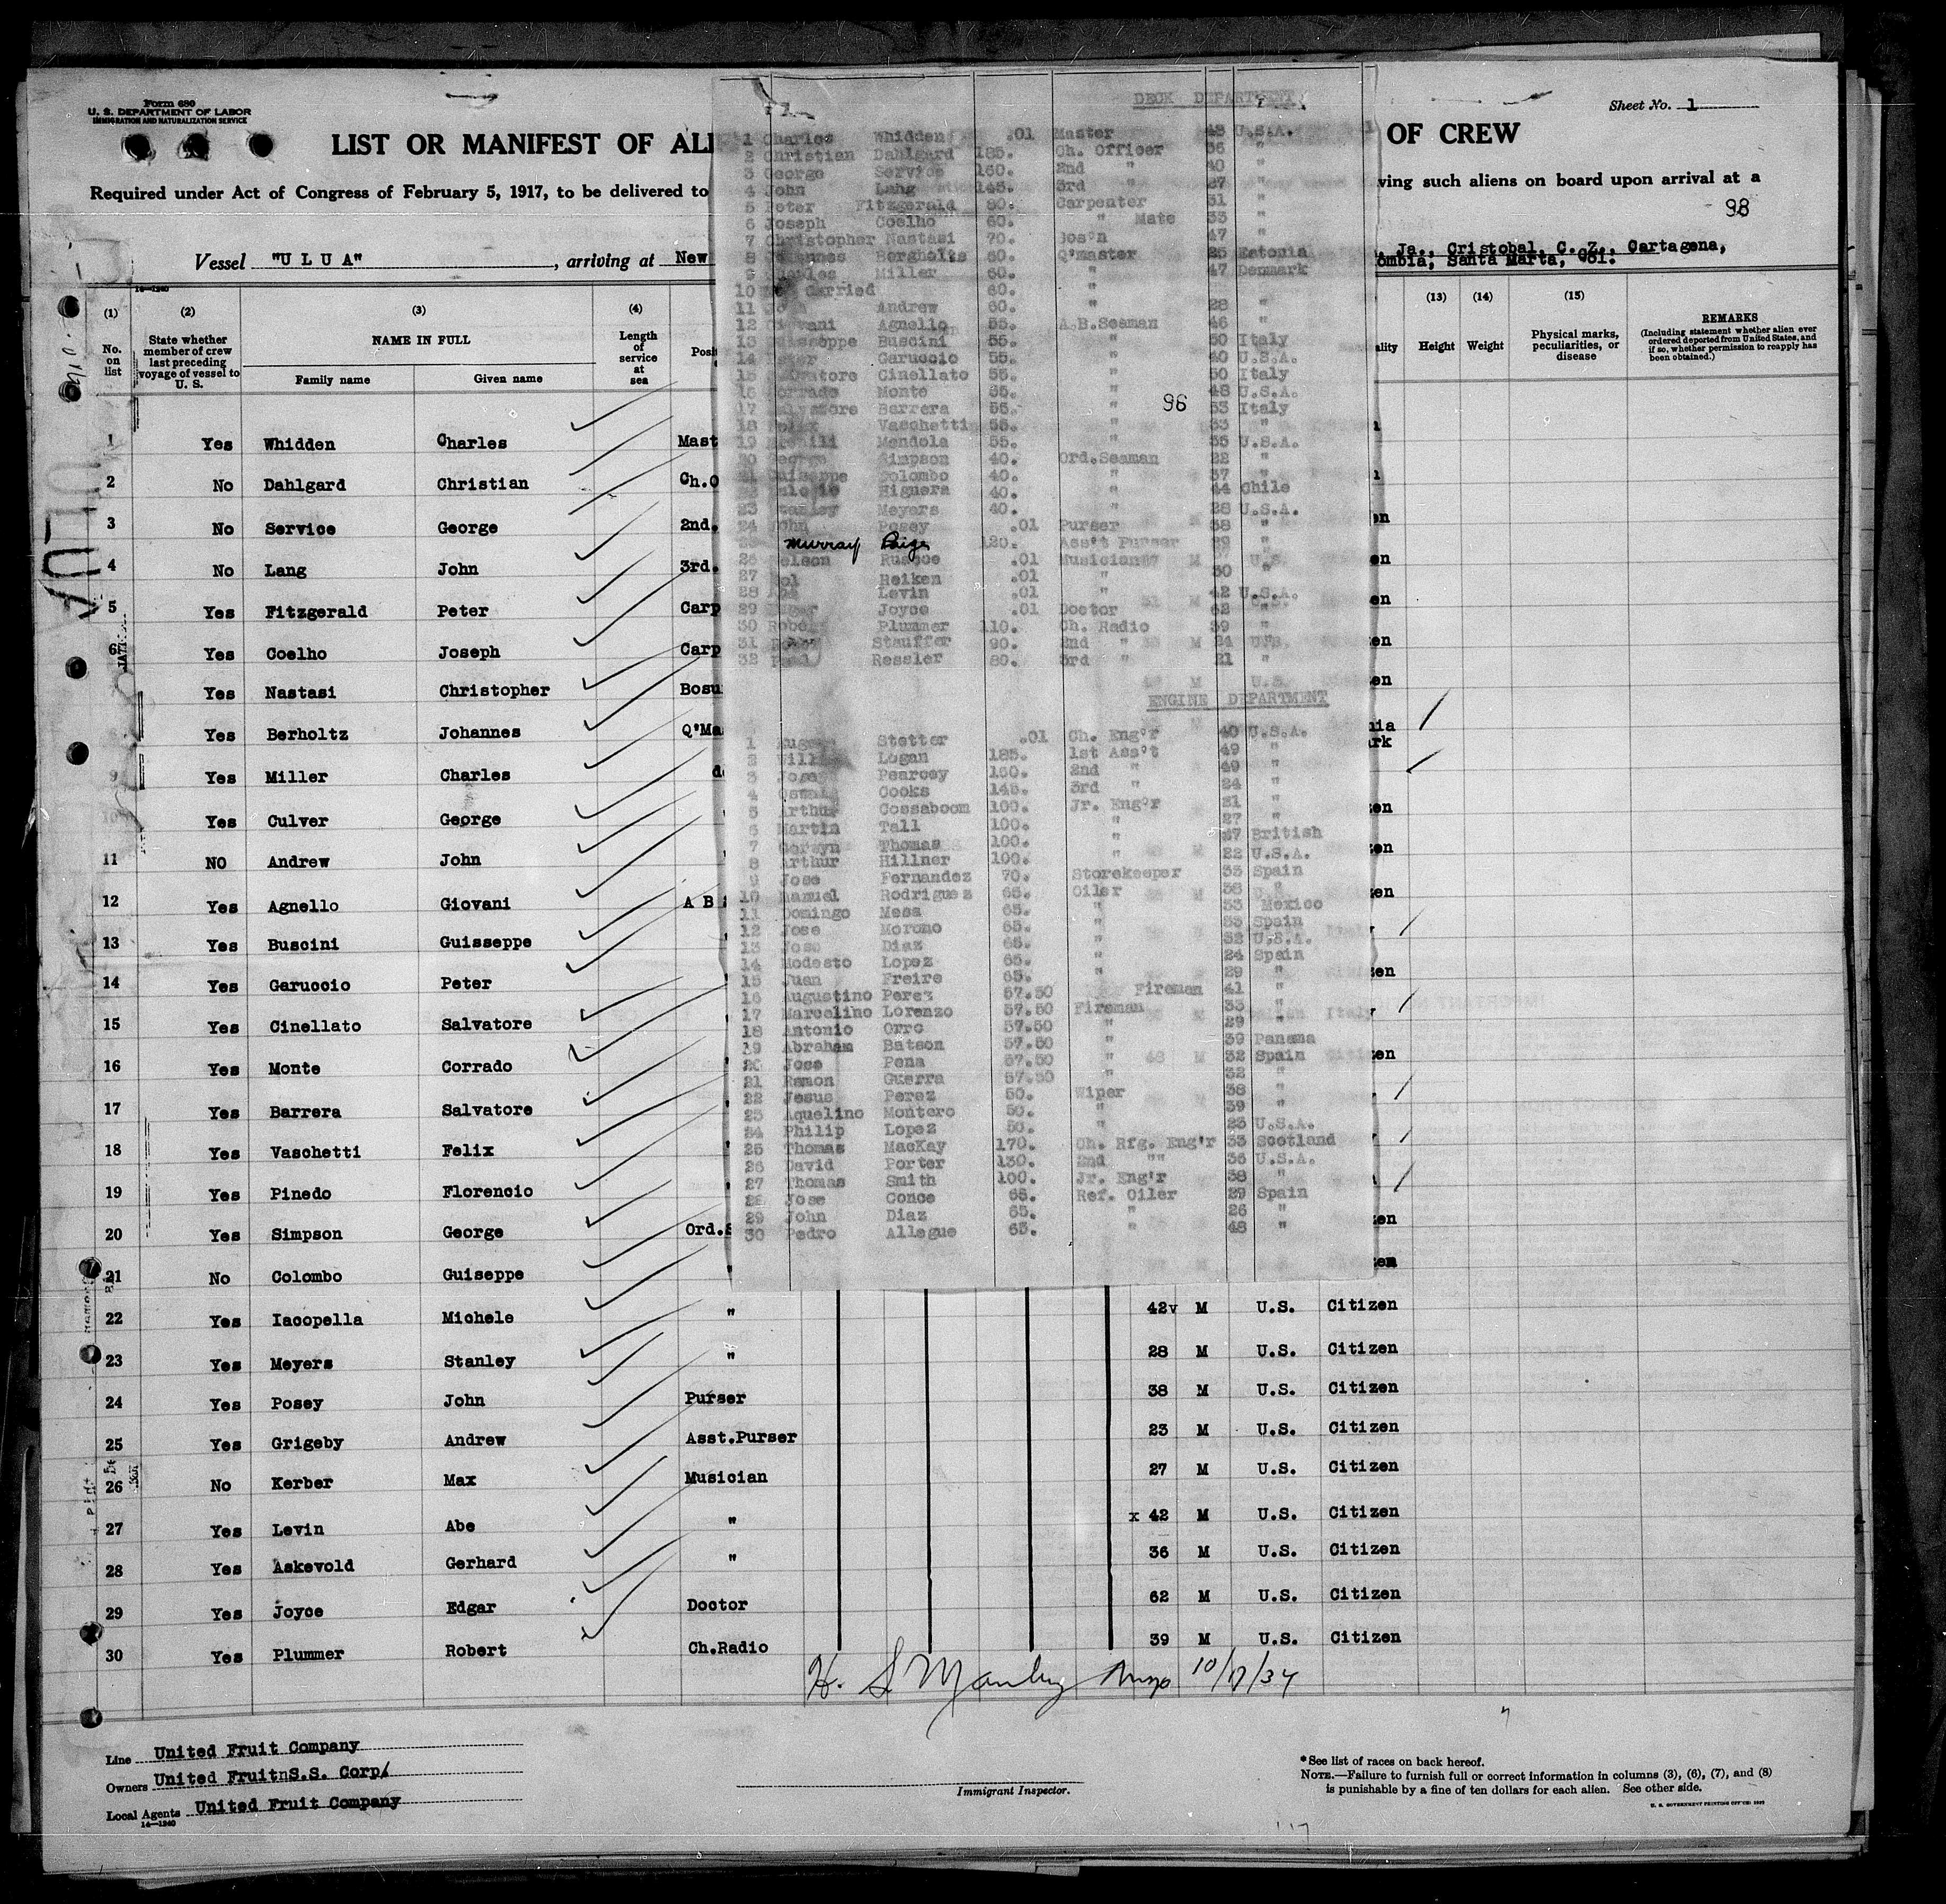 Form 680
U. S. DEPARTMENT OF LABOR
IMMIGRATION AND NATURALIZATION SERVICE
Sheet No. 1
LIST OR MANIFEST OF ALI OF CREW
Required under Act of Congress of February 5, 1917, to be delivered to ving such aliens on board upon arrival at a
98
Vessel "U L U A" , arriving at New Ja., Cristobal, C. Z., Cartagena,
ombia, Santa Marta, Col.
(1) (2) (3) (4) (13) (14) (15)
No. on list
State whether member of crew last preceding voyage of vessel to U. S.
NAME IN FULL
Family name Given name
Length of service at sea
Height Weight
Physical marks, peculiarities, or disease
REMARKS
(Including statement whether alien ever ordered deported from United States, and if so, whether permission to reapply has been obtained.)
1 Yes Whidden Charles Mast
2 No Dahlgard Christian Ch.O
3 No Service George 2nd.
4 No Lang John 3rd.
5 Yes Fitzgerald Peter Carp
6 Yes Coelho Joseph Carp
Yes Nastasi Christopher Bosu
Yes Berholtz Johannes Q'Ma
9 Yes Miller Charles
10 Yes Culver George
11 NO Andrew John
12 Yes Agnello Giovani A B
13 Yes Buscini Guisseppe
14 Yes Garuccio Peter
15 Yes Cinellato Salvatore
16 Yes Monte Corrado
17 Yes Barrera Salvatore
18 Yes Vaschetti Felix
19 Yes Pinedo Florencio
20 Yes Simpson George Ord.S
21 No Colombo Guiseppe
22 Yes Iacopella Michele " 42v M U.S. Citizen
23 Yes Meyers Stanley " 28 M U.S. Citizen
24 Yes Posey John Purser 38 M U.S. Citizen
25 Yes Grigeby Andrew Asst.Purser 23 M U.S. Citizen
26 No Kerber Max Musician 27 M U.S. Citizen
27 Yes Levin Abe " x 42 M U.S. Citizen
28 Yes Askevold Gerhard " 36 M U.S. Citizen
29 Yes Joyce Edgar Doctor 62 M U.S. Citizen
30 Yes Plummer Robert Ch.Radio 39 M U.S. Citizen
DECK DEPARTMENT
1 Charles Whidden .01 Master 43 U.S.A.
2 Christian Dahlgard 185. Ch. Officer 36 "
3 George Service 160. 2nd " 40 "
4 John Lang 145. 3rd " 27 "
5 Peter Fitzgerald 80. Carpenter 31 "
6 Joseph Coelho 60. " Mate 33 "
7 Christopher Nastasi 70. Bos'n 47 "
8 Johannes Bergholts 60. Q'master 25 Estonia
9 Charles Miller 60. " 47 Denmark
10 Carried 60. "
11 John Andrew 60. " 28 "
12 Giovani Agnello 55. A.B.Seaman 46 "
13 Guisseppe Buscini 55. " 50 Italy
14 Peter Garuccio 55. " 40 U.S.A.
15 Salvatore Cinellato 55. " 50 Italy
16 Corrado Monte 55. " 48 U.S.A.
17 Salvatore Barrera 55. " 53 Italy
96
18 Felix Vaschetti 55. " 33 "
19 Mendola 55. " 35 U.S.A.
20 George Simpson 40. Ord.Seaman 22 "
21 Guiseppe Colombo 40. " 37 "
22 Higuera 40. " 44 Chile
23 Stanley Meyers 40. " 28 U.S.A.
24 John Posey .01 Purser 38 "
25 Murray Paige 120. Ass't Purser 29 "
26 Nelson Ruscoe .01 Musician
27 Sol Heiken .01 " 30 "
28 Abe Levin .01 " 42 U.S.A.
29 Edgar Joyce .01 Doctor 62 "
30 Robe Plummer 110. Ch. Radio 39 "
31 Stauffer 90. 2nd " 24
32 Paul Ressler 80. 3rd " 21 "
ENGINE DEPARTMENT
1 August Stetter .01 Ch. Eng'r 40 U.S.A.
2 Willi Logan 185. 1st Ass't 49 "
3 Jose Pearcey 160. 2nd " 49 "
4 Oswal Cooks 145. 3rd " 24 "
5 Arthur Cossaboom 100. Jr. Eng'r 21 "
6 Martin Tall 100. " 27 "
7 Gorwyn Thomas 100. " 27 British
8 Arthur Hillner 100. " 22 U.S.A.
9 Jose Fernandez 70. Storekeeper 33 Spain
10 Manuel Rodriguez 65. Oiler 38 "
11 Domingo Mesa 65. " 53 Mexico
12 Jose Moromo 65. " 33 Spain
13 Jose Diaz 65. " 32 U.S.A.
14 Modesto Lopez 65. " 24 Spain
15 Juan Freire 65. " 29 "
16 Augustino Perez 57.50 Fireman 41 "
17 Marcelino Lorenzo 57.50 Fireman 33 "
18 Antonio Orro 57.50 " 29 "
19 Abraham Batson 57.50 " 39 Panama
20 Jose Pena 57.50 " 32 Spain
21 Ramon Guerra 57.50 " 32 "
22 Jesus Perez 50. Wiper 38 "
23 Aquelino Montero 50. " 39 "
24 Philip Lopez 50. " 23 U.S.A.
25 Thomas MacKay 170. Ch. Rfg. Eng'r 33 Scotland
26 David Porter 130. 2nd "" 36 U.S.A.
27 Thomas Smith 100. Jr. Eng'r 38 "
28 Jose Conce 65. Ref. Oiler 29 Spain
29 John Diaz 65. " 26 "
30 Pedro Allegue 65. " 48 "
H. S. Manley 10/17/34
Line United Fruit Company
Owners United FruitnS.S. Corp/
Local Agents United Fruit Company
14—1240
Immigrant Inspector.
*See list of races on back hereof.
NOTE.—Failure to furnish full or correct information in columns (3), (6), (7), and (8)
is punishable by a fine of ten dollars for each alien. See other side.